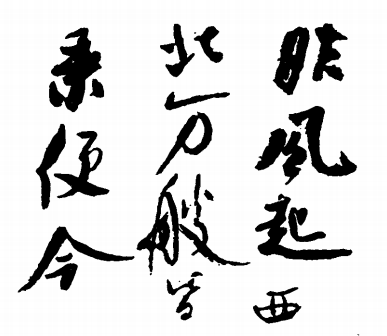 昨風起西
北万艘皆
乘便今